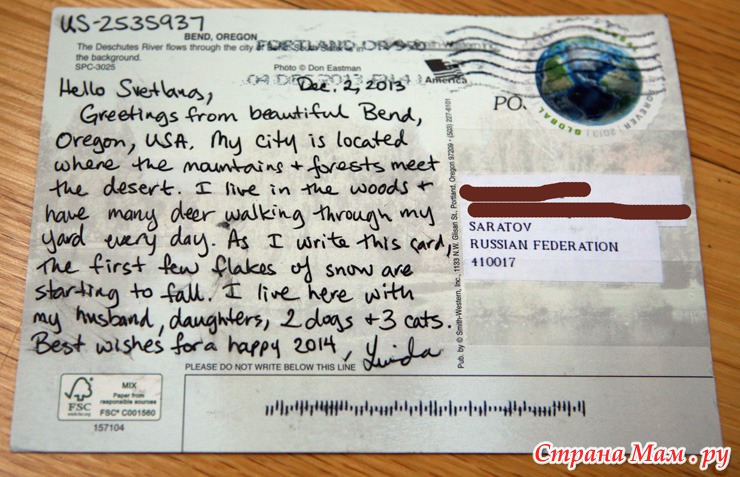 US-2535937
BEND, OREGON
The Deschutes River flows through the city
the background.
SPC-3025
Photo © Don Eastman
PORTLAND OR 970
04 DEC 2013 PM 4 L
America
Dec. 2, 2013
Hello Svetlana,
Greetings from beautiful Bend,
Oregon, USA. My city is located
where the mountains + forests meet
the desert. I live in the woods +
have many deer walking through my
yard every day. As I write this card,
the first few flakes of snow are
starting to fall. I live here with
my husband, daughters, 2 dogs + 3 cats.
Best wishes for a happy 2014, Linda
PLEASE DO NOT WRITE BELOW THIS LINE
Pub. by © Smith-Western, Inc., 1133 N.W. Glisan St., Portland, Oregon 97209 • (503) 227-6101
PO
GLOBAL
FOREVER 2013
SARATOV
RUSSIAN FEDERATION
410017
FSC
MIX
Paper from
responsible sources
FSC® C001560
157104
Страна Мам.ру